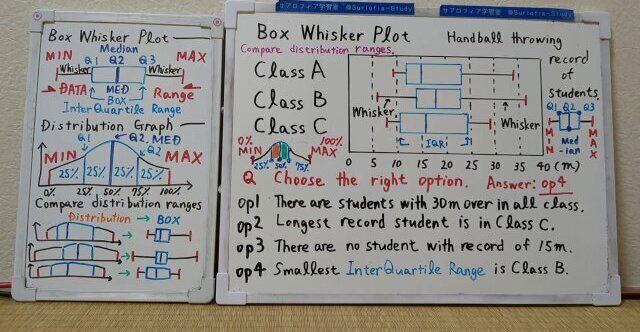 サアロフィア学習室 @Surlofia-Study サアロフィア学習室 @Surlofia-Study
Box Whisker Plot
Median
MIN Q1 Q2 Q3 MAX
Whisker MED Whisker
DATA Box Range
InterQuartile Range
Distribution Graph
MIN Q2.MED Q2 MAX
25% 25% 25% 25%
0% 25% 50% 75% 100%
Compare distribution ranges
Distribution → BOX
Box Whisker Plot Handball throwing
Compare distribution ranges.
record
of
students
Class A
Class B
Class C
Whisker Whisker
IQR
0 5 10 15 20 25 30 35 40 (m)
Q1 Q2 Q3
MIN Med-ian MAX
0% 100%
MIN 25% 50% 75% MAX
Q Choose the right option. Answer: op4
op1 There are students with 30m over in all class.
op2 Longest record student is in Class C.
op3 There are no student with record of 15m.
op4 Smallest InterQuartile Range is Class B.